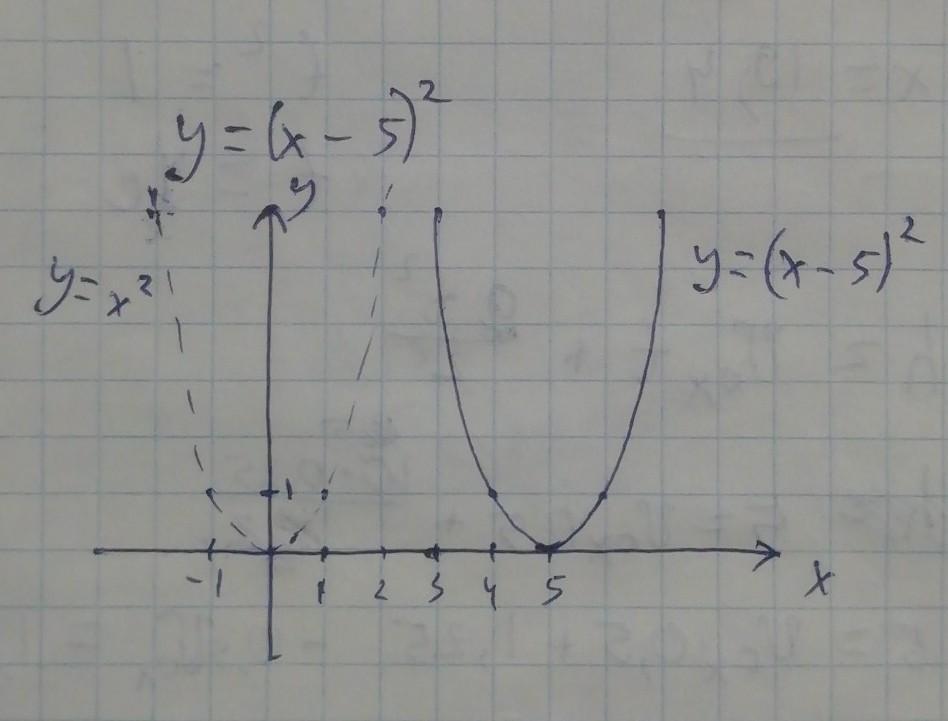 y = (x - 5)²
y
y = x²
y = (x - 5)²
1
-1 1 2 3 4 5 x